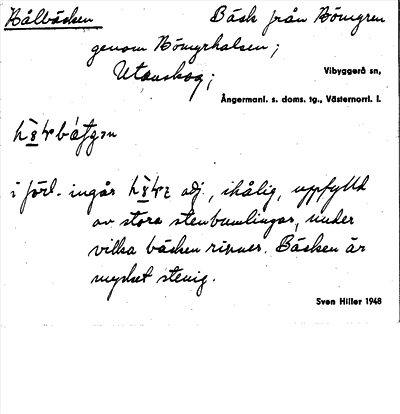 Hålbäcken Bäck från Hömyren
genom Hömyrhalsen;
Utanskog;
Vibyggerå sn,
Ångermanl. s. doms. tg., Västernorrl. l.
i förl. ingår adj., ihålig, uppfylld
av stora stenbumlingar, under
vilka bäcken rinner. Bäcken är
mycket stenig.
Sven Hiller 1948